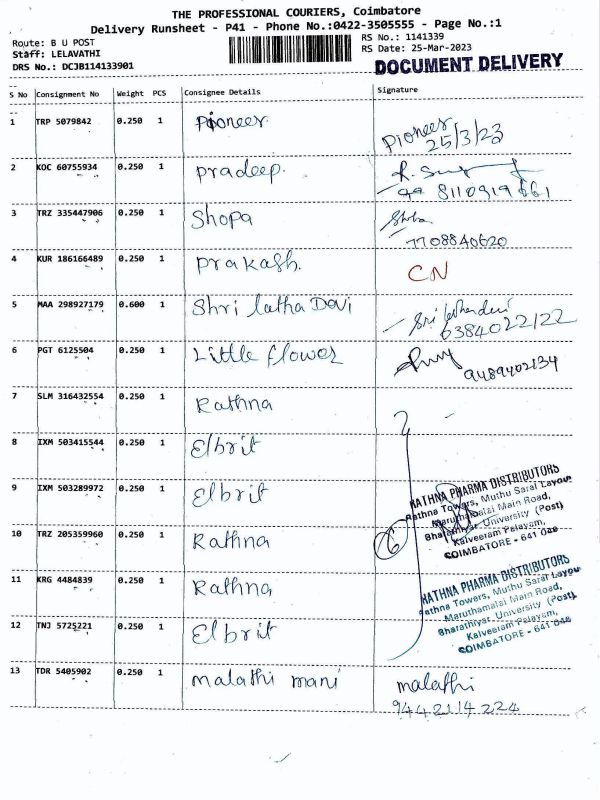 THE PROFESSIONAL COURIERS, Coimbatore
Delivery Runsheet - P41 - Phone No.:0422-3505555 - Page No.:1
Route: B U POST
Staff: LELAVATHI
DRS No.: DCJB114133901
RS No.: 1141339
RS Date: 25-Mar-2023
DOCUMENT DELIVERY
S No Consignment No Weight PCS Consignee Details Signature
1 TRP 5079842 0.250 1 Pioneer Pioneer
25/3/23
2 KOC 60755934 0.250 1 pradeep.
3 TRZ 335447906 0.250 1 Shopa
7708840620
4 KUR 186166489 0.250 1 prakash. CN
5 MAA 298927179 0.600 1 Shri latha Devi
6384022122
6 PGT 6125504 0.250 1 Little flower
9489402134
7 SLM 316432554 0.250 1 Rathna
8 IXM 503415544 0.250 1 Elbrit
9 IXM 503289972 0.250 1 Elbrit
RATHNA PHARMA DISTRIBUTORS
Rathna Towers, Muthu Sarai Layout
Maruthamalai Main Road,
Bharathiyar University (Post)
Kalveeram Palayam,
COIMBATORE - 641 046
10 TRZ 205359960 0.250 1 Rathna 6
11 KRG 4484839 0.250 1 Rathna
RATHNA PHARMA DISTRIBUTORS
Rathna Towers, Muthu Sarai Layout
Maruthamalai Main Road,
Bharathiyar University (Post),
Kalveeram Palayam,
COIMBATORE - 641 046
12 TNJ 5725221 0.250 1 Elbrit
13 TDR 5405902 0.250 1 malathi mani malathi
9442114224